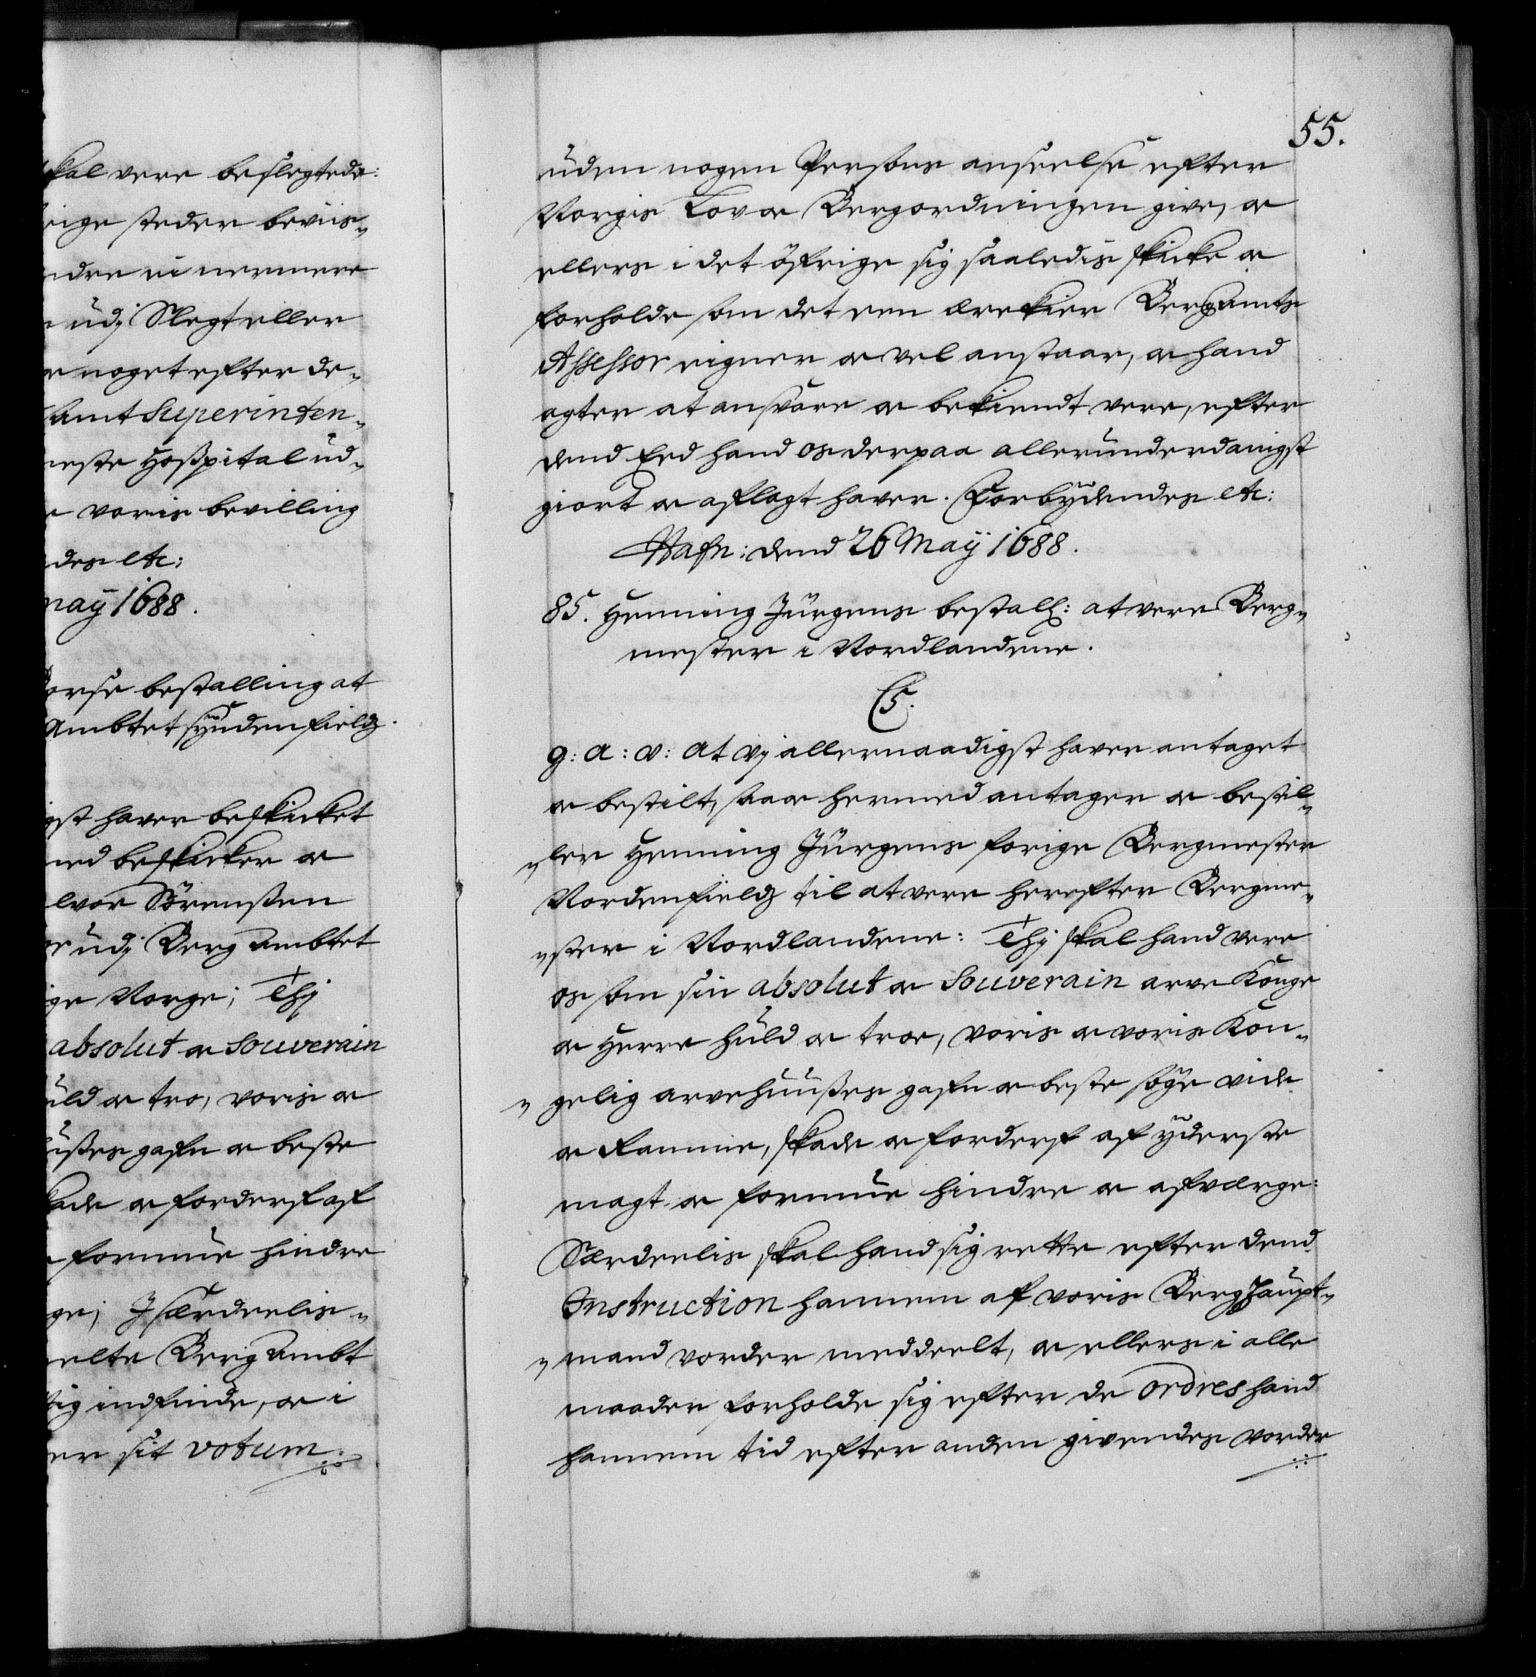 kal vere beslegtede:
rige steder beviis„
ndre ei nermere
udj Slegt eller
e noget efter de„
Ambt Superinten„
neste Hospital ud„
e voris bevilling
des etc:
may 1688.
orse bestalling at
Ambtet syndenfields.
gst haver beskicket
med beskicker oc
lvor Sørensen
or udj Berg Ambtet
ige Norge; Thj
absolut oc Souverain
uld oc tro, voris oc
ußes gafn oc beste
kade oc forderf af
formue hindre
ge; Jsærdeelis„
elte Berg Ambt
tig indfinde, oc i
er sit votum.
55.
uden nogen Persons anseelse efter
Norgis Lov oc Bergordningen give, oc
ellers i det øfrige sig saaledis skicke oc
forholde som det een ærekier Bergamts
Assessor eigner oc vel anstaar, oc hand
agter at ansvare oc bekiendt vere, efter
dend Eed hand os derpaa allerunderdanigst
giort oc aflagt haver. Forbydendes etc:
Hafn: dend 26 Maÿ 1688.
85. Henning Jürgens bestall: at vere Berg„
mester i Nordlandene.
C5.
G: A: V: At vj allernaadigst haver antaget
oc bestilt, saa oc hermed antager oc bestil„
„ler Henning Jürgens forige Bergmester
Nordenfields til at vere herefter Bergme„
„ster i Nordlandene: Thj skal hand vere
os som sin absolut oc Souverain arve Konge
oc Herre huld oc troe, voris oc voris Kon„
„gelig arvehuußes gafn oc beste søge vide
oc Ramme, skade oc forderf af yderste
magt oc formue hindre oc afverge:
Særdeelis skal hand sig rette efter dend
Instruction hannem af voris Berghaupt„
„mand vorder meddeelt, oc ellers i alle
maader forholde sig efter de ordres hand
hannem tid efter anden givendes vorder